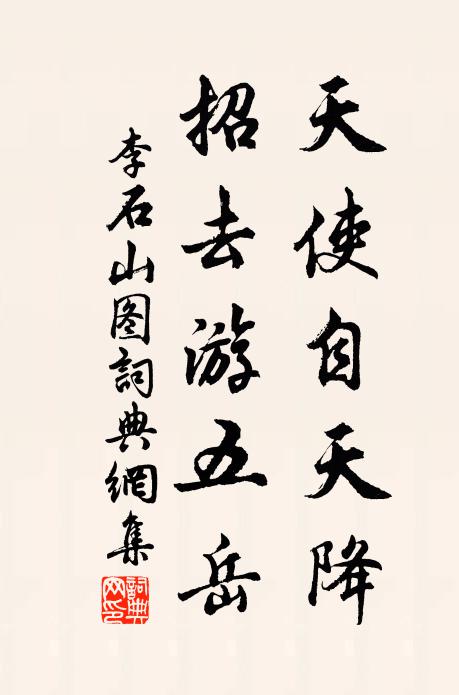 天使自天降
招去游五岳
李石山图詞典網集
詞典
网印